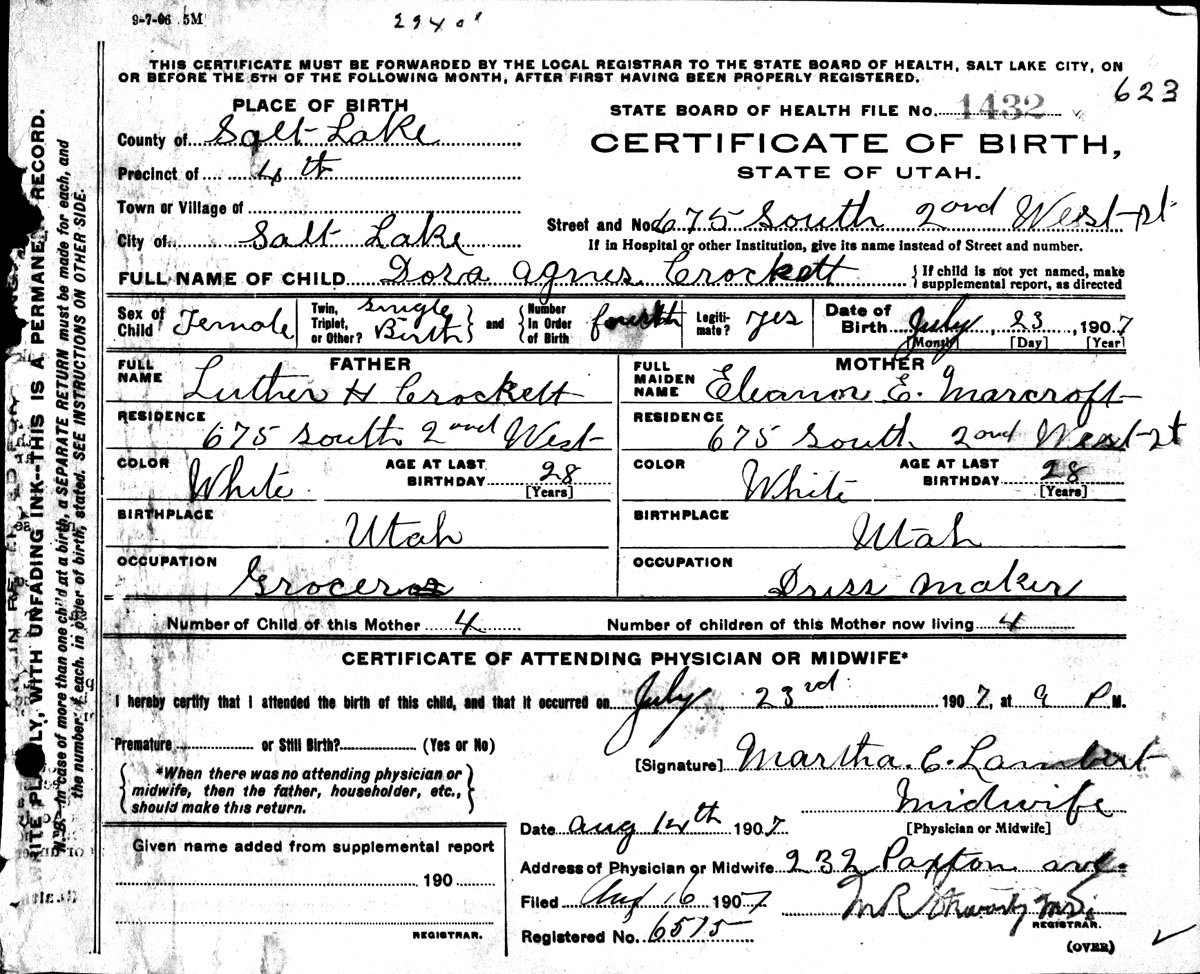 9-7-06 5M
294 0"
THIS CERTIFICATE MUST BE FORWARDED BY THE LOCAL REGISTRAR TO THE STATE BOARD OF HEALTH, SALT LAKE CITY, ON
OR BEFORE THE 5TH OF THE FOLLOWING MONTH, AFTER FIRST HAVING BEEN PROPERLY REGISTERED.
623
PLACE OF BIRTH
STATE BOARD OF HEALTH FILE No. 1432
County of Salt Lake
CERTIFICATE OF BIRTH,
STATE OF UTAH.
Precinct of 4th
Town or Village of
Street and No. 675 South 2ond West st
City of Salt Lake
If in Hospital or other Institution, give its name instead of Street and number.
FULL NAME OF CHILD Dora Agnes Crockett {If child is not yet named, make supplemental report, as directed
Sex of Child Female Twin, Triplet, or Other? Single Birth } and { Number in Order of Birth fourth Legiti-mate? yes Date of Birth July, 23, 1907
[Month] [Day] [Year]
FATHER
MOTHER
FULL NAME Luther H Crockett
FULL MAIDEN NAME Eleanor E. Marcroft
RESIDENCE 675 South 2ond West
RESIDENCE 675 South 2ond West st
COLOR White AGE AT LAST BIRTHDAY 28 [Years]
COLOR White AGE AT LAST BIRTHDAY 28 [Years]
BIRTHPLACE Utah
BIRTHPLACE Utah
OCCUPATION Grocer
OCCUPATION Driss Maker
Number of Child of this Mother 4 Number of children of this Mother now living 4
CERTIFICATE OF ATTENDING PHYSICIAN OR MIDWIFE*
I hereby certify that I attended the birth of this child, and that it occurred on July 23rd 1907, at 9 P M.
Premature or Still Birth? (Yes or No)
[Signature] Martha. C. Lambert
{ *When there was no attending physician or
midwife, then the father, householder, etc.,
should make this return. }
Midwife
[Physician or Midwife]
Date Aug 14th 1907
Given name added from supplemental report
190
REGISTRAR.
Address of Physician or Midwife 232 Paxton ave.
Filed Aug 16 1907
REGISTRAR.
Registered No. 6575
(OVER)
WRITE PLAINLY, WITH UNFADING INK--THIS IS A PERMANENT RECORD.
N.B.--In case of more than one child at a birth, a SEPARATE RETURN must be made for each, and
the number of each, in order of birth, stated. SEE INSTRUCTIONS ON OTHER SIDE.